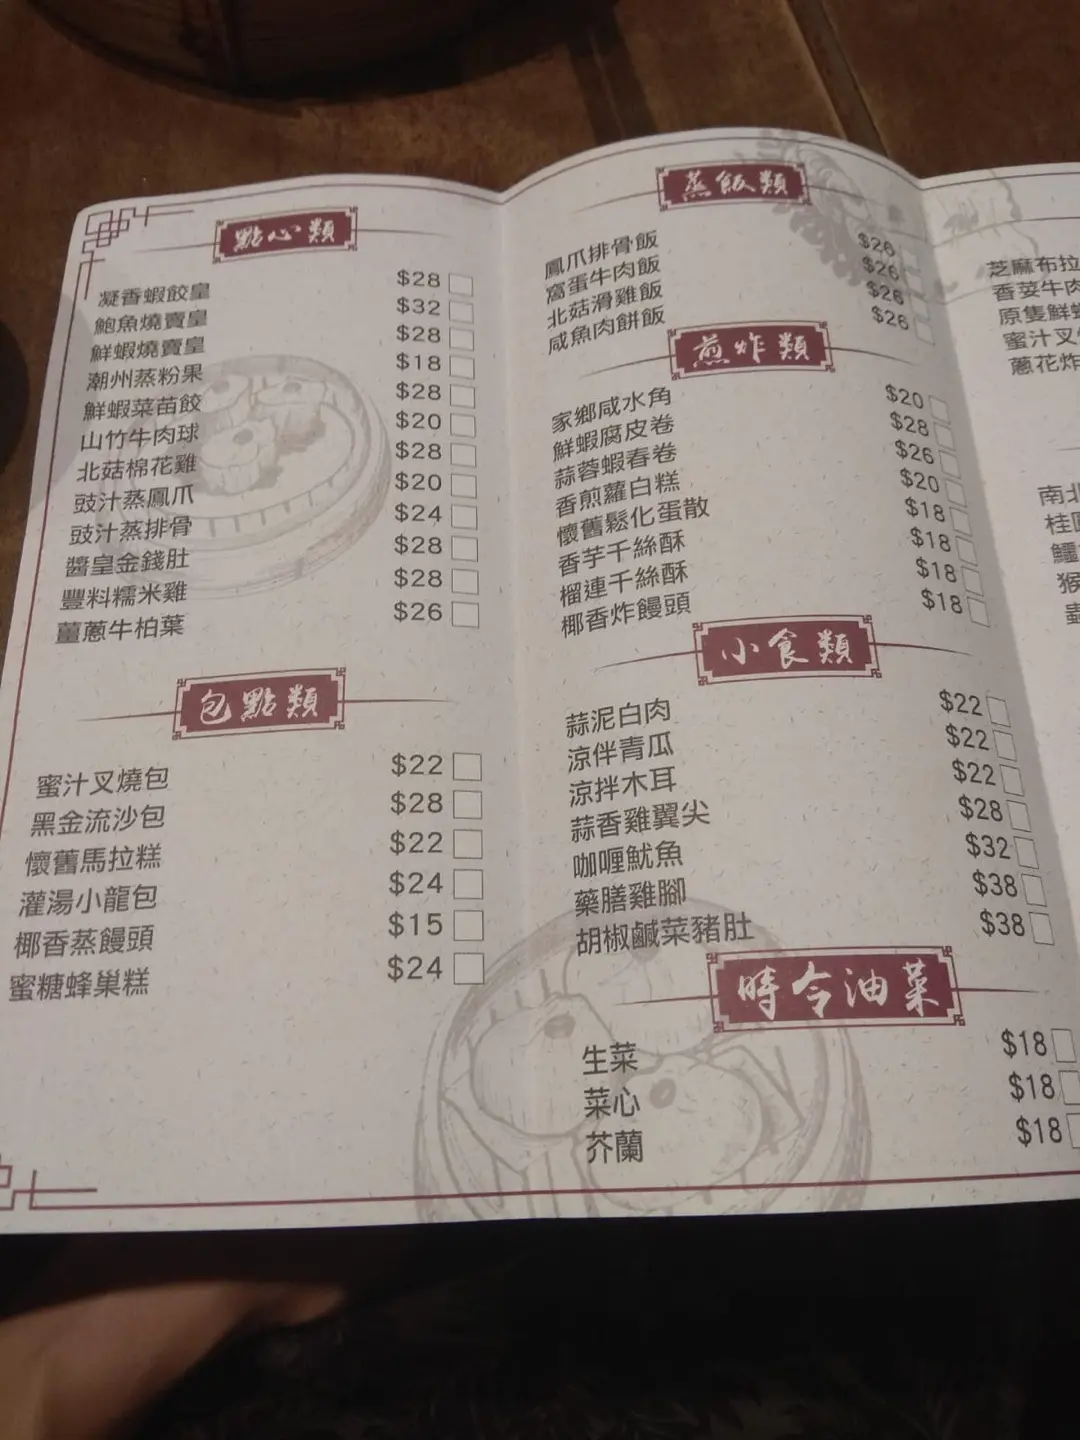 點心類
凝香蝦餃皇 $28
鮑魚燒賣皇 $32
鮮蝦燒賣皇 $28
潮州蒸粉果 $18
鮮蝦菜苗餃 $28
山竹牛肉球 $20
北菇棉花雞 $28
豉汁蒸鳳爪 $20
豉汁蒸排骨 $24
醬皇金錢肚 $28
豐料糯米雞 $28
薑蔥牛柏葉 $26
包點類
蜜汁叉燒包 $22
黑金流沙包 $28
懷舊馬拉糕 $22
灌湯小龍包 $24
椰香蒸饅頭 $15
蜜糖蜂巢糕 $24
蒸飯類
鳳爪排骨飯 $26
窩蛋牛肉飯 $26
北菇滑雞飯 $26
咸魚肉餅飯 $26
煎炸類
家鄉咸水角 $20
鮮蝦腐皮卷 $28
蒜蓉蝦春卷 $26
香煎蘿白糕 $20
懷舊鬆化蛋散 $18
香芋千絲酥 $18
榴連千絲酥 $18
椰香炸饅頭 $18
小食類
蒜泥白肉 $22
涼伴青瓜 $22
涼拌木耳 $22
蒜香雞翼尖 $28
咖喱魷魚 $32
藥膳雞腳 $38
胡椒鹹菜豬肚 $38
時令油菜
生菜 $18
菜心 $18
芥蘭 $18
芝麻布拉
香荽牛肉
原隻鮮蝦
蜜汁叉
蔥花炸
南北
桂